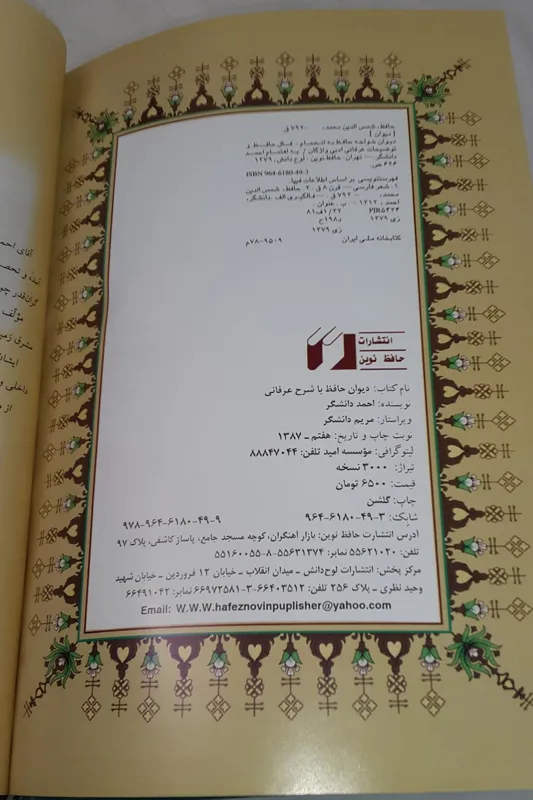 حافظ، شمس الدین محمد، -۷۹۲ ق
[دیوان]
دیوان خواجه حافظ به انضمام: فال حافظ و
توضیحات عرفانی ادبی واژگان / به اهتمام احمد
دانشگر. — تهران: حافظ نوین: لوح دانش، ۱۳۷۹.
۶۲۶ ص.
ISBN 964-6180-49-1
فهرستنویسی بر اساس اطلاعات فیپا
۱. شعر فارسی — قرن ۸ ق. ۲. حافظ، شمس الدین
محمد، - ۷۹۲ ق. — فالگیری الف. دانشگر،
احمد، ۱۳۱۲ - . ب. عنوان.
PIR۵۴۲۴ ۸۱فا۱/۲۲
زی ۱۳۷۹ ر۱۹۸ح
زی ۱۳۷۹
کتابخانه ملی ایران ۹۵۰۹-۷۸م
انتشارات
حافظ نوین
نام کتاب: دیوان حافظ با شرح عرفانی
نویسنده: احمد دانشگر
ویراستار: مریم دانشگر
نوبت چاپ و تاریخ: هفتم ـ ۱۳۸۷
لیتوگرافی: مؤسسه امید تلفن: ۸۸۸۴۷۰۴۴
تیراژ: ۳۰۰۰ نسخه
قیمت: ۶۵۰۰ تومان
چاپ: گلشن
شابک: ۳-۴۹-۶۱۸۰-۹۶۴ ۹-۴۹-۶۱۸۰-۹۶۴-۹۷۸
آدرس انتشارت حافظ نوین: بازار آهنگران، کوچه مسجد جامع، پاساژ کاشفی، پلاک ۹۷
تلفن: ۵۵۶۲۱۰۲۰ نمابر: ۵۵۶۳۱۳۷۴-۸-۵۵۱۶۰۰۵۵
مرکز پخش: انتشارات لوح‌دانش ـ میدان انقلاب ـ خیابان ۱۲ فروردین ـ خیابان شهید
وحید نظری ـ پلاک ۲۵۶ تلفن: ۶۶۴۰۳۵۱۲-۳-۶۶۹۷۲۵۸۱ نمابر: ۶۶۴۹۱۰۴۲
Email: W.W.W.hafeznovinpuplisher@yahoo.com
آقای احم
آمده و تحص
گران‌قدر چو
مؤلف
مشرق زمی
ایشان
داخلی و
از م